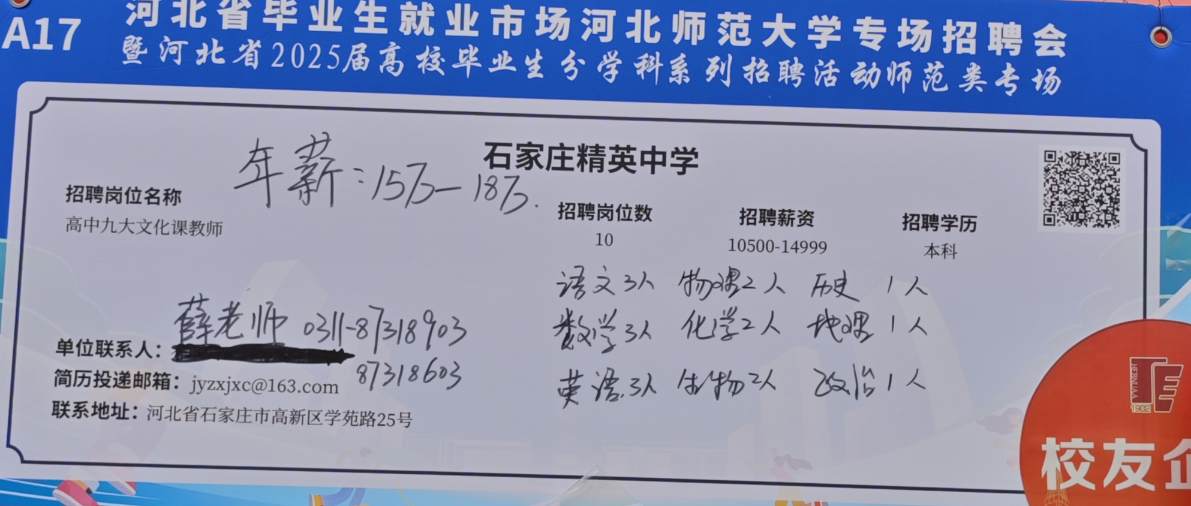 A17
河北省毕业生就业市场河北师范大学专场招聘会
暨河北省2025届高校毕业生分学科系列招聘活动师范类专场
石家庄精英中学
年薪：15万—18万.
招聘岗位名称
高中九大文化课教师
招聘岗位数
10
招聘薪资
10500-14999
招聘学历
本科
语文3人 物理2人 历史 1人
数学3人 化学2人 地理 1人
英语3人 生物2人 政治1人
薛老师 0311-87318903
87318603
单位联系人：
简历投递邮箱：jyzxjxc@163.com
联系地址：河北省石家庄市高新区学苑路25号
校友企